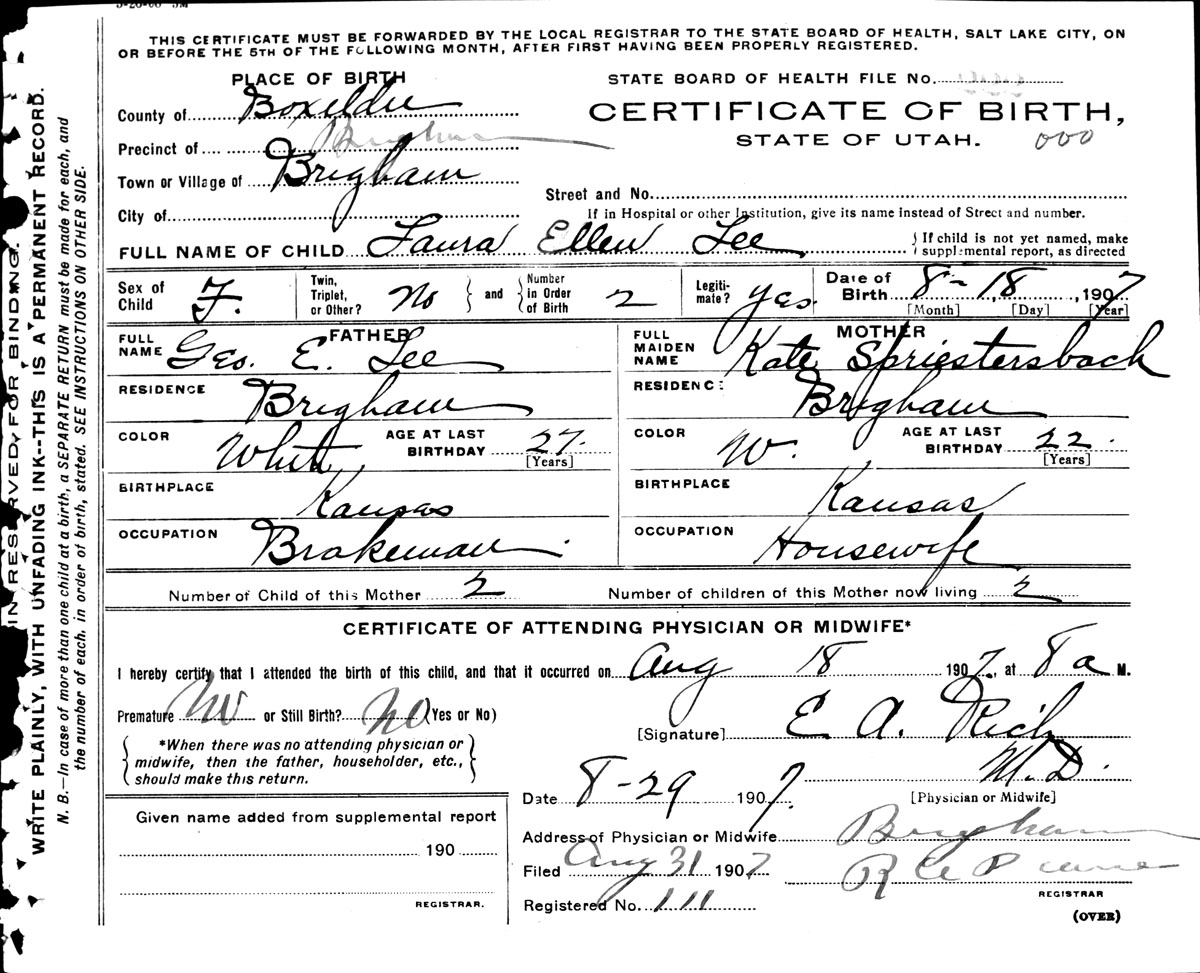 THIS CERTIFICATE MUST BE FORWARDED BY THE LOCAL REGISTRAR TO THE STATE BOARD OF HEALTH, SALT LAKE CITY, ON
OR BEFORE THE 5TH OF THE FOLLOWING MONTH, AFTER FIRST HAVING BEEN PROPERLY REGISTERED.
PLACE OF BIRTH
STATE BOARD OF HEALTH FILE No.
County of Boxelder
CERTIFICATE OF BIRTH,
STATE OF UTAH. 000
Precinct of Brigham
Town or Village of Brigham
Street and No.
City of
If in Hospital or other Institution, give its name instead of Street and number.
FULL NAME OF CHILD Laura Ellen Lee
If child is not yet named, make
supplemental report, as directed
Sex of Child F.
Twin, Triplet, or Other? No
and
Number in Order of Birth 2
Legitimate? Yes.
Date of Birth 8-18, 1907
[Month] [Day] [Year]
FATHER
FULL NAME Geo. E. Lee
MOTHER
FULL MAIDEN NAME Kate Spriestersbach
RESIDENCE Brigham
RESIDENCE Brigham
COLOR White AGE AT LAST BIRTHDAY 27.
[Years]
COLOR W. AGE AT LAST BIRTHDAY 22.
[Years]
BIRTHPLACE Kansas
BIRTHPLACE Kansas
OCCUPATION Brakeman
OCCUPATION Housewife
Number of Child of this Mother 2
Number of children of this Mother now living 2
CERTIFICATE OF ATTENDING PHYSICIAN OR MIDWIFE*
I hereby certify that I attended the birth of this child, and that it occurred on Aug 18 1907, at 8 a M.
Premature No or Still Birth? No (Yes or No)
[Signature] E. A. Rich
M.D.
[Physician or Midwife]
*When there was no attending physician or
midwife, then the father, householder, etc.,
should make this return.
Date 8-29 1907.
Given name added from supplemental report
190
REGISTRAR.
Address of Physician or Midwife Brigham
Filed Aug 31 1907
REGISTRAR
Registered No. 111
(OVER)
IN RESERVED FOR BINDING.
WRITE PLAINLY, WITH UNFADING INK--THIS IS A PERMANENT RECORD.
N. B.—In case of more than one child at a birth, a SEPARATE RETURN must be made for each, and
the number of each, in order of birth, stated. SEE INSTRUCTIONS ON OTHER SIDE.